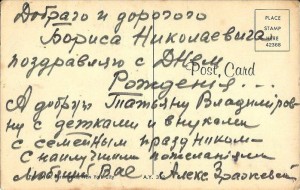 Добраго и дорогого
Бориса Николаевича
поздравляю с Днем
Рождения...
А добрую Татьяну Владимиров-
ну с детками и внуками
с семейным праздником.
С наилучшими пожеланиями
Любящий Вас Алекс
Post Card
PLACE
STAMP
HERE
42368